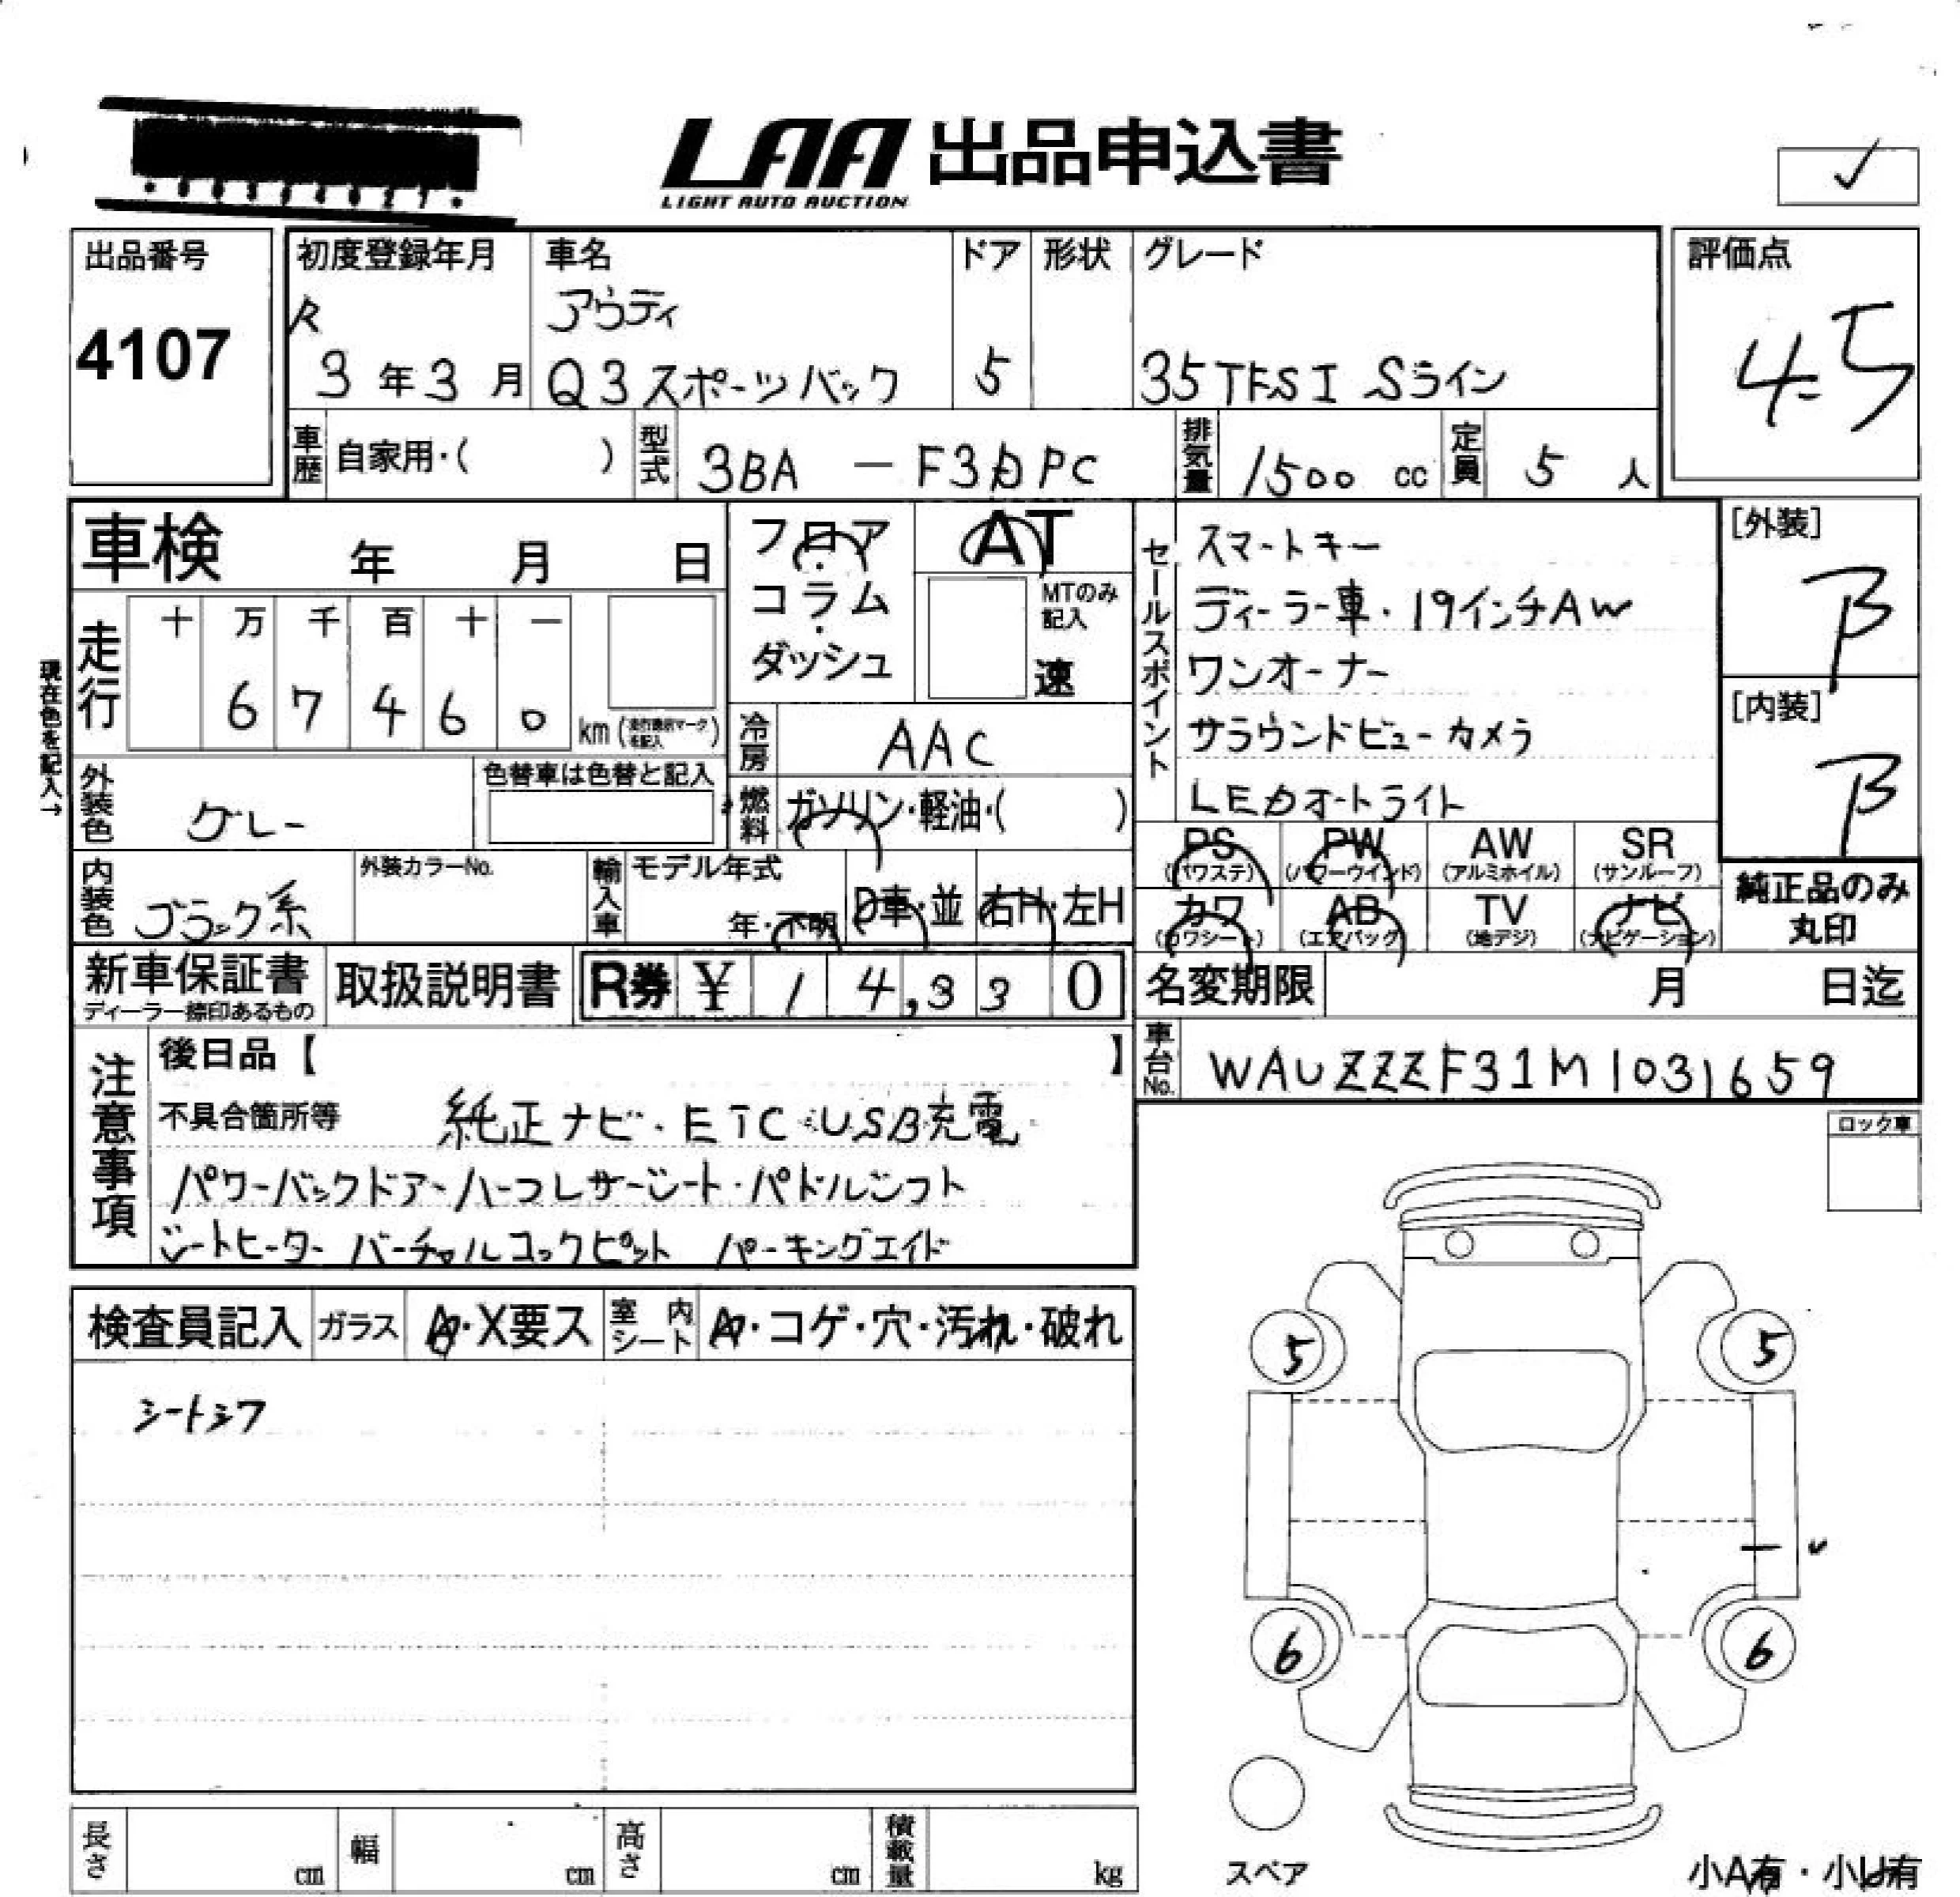 LAA 出品申込書
LIGHT AUTO AUCTION
✓
出品番号
4107
初度登録年月
R
3年3月
車名
アウディ
Q3スポーツバック
ドア
5
形状
グレード
35TFSI Sライン
評価点
4.5
車歴 自家用・( )
型式 3BA - F3DPC
排気量 1500 cc
定員 5 人
車検 年 月 日
現在色を記入→
走行
十 万 千 百 十 一
6 7 4 6 0 km
フロア・コラム・ダッシュ
AT
MTのみ記入
速
冷房 AAC
燃料 ガソリン・軽油・( )
外装色 グレー
色替車は色替と記入
内装色 ブラック系
外装カラーNo.
輸入車
モデル年式
年・不明
D車・並
右H・左H
セールスポイント
スマートキー
ディーラー車・19インチAW
ワンオーナー
サラウンドビューカメラ
LEDオートライト
[外装]
B
[内装]
B
PS (パワステ)
PW (パワーウインド)
AW (アルミホイル)
SR (サンルーフ)
カワ (カワシート)
AB (エアバッグ)
TV (地デジ)
ナビ (ナビゲーション)
純正品のみ
丸印
新車保証書
ディーラー捺印あるもの
取扱説明書
R券 ¥ 14,330
名変期限 月 日迄
車台No. WAUZZZF31M1031659
注意事項
後日品【 】
不具合箇所等 純正ナビ・ETC・USB充電
パワーバックドア・ハーフレザーシート・パドルシフト
シートヒーター バーチャルコックピット パーキングエイド
ロック車
検査員記入
ガラス A・X要ス
室内シート A・コゲ・穴・汚れ・破れ
シートシワ
5
5
6
6
スペア
長さ cm
幅 cm
高さ cm
積載量 kg
小A有・小U有